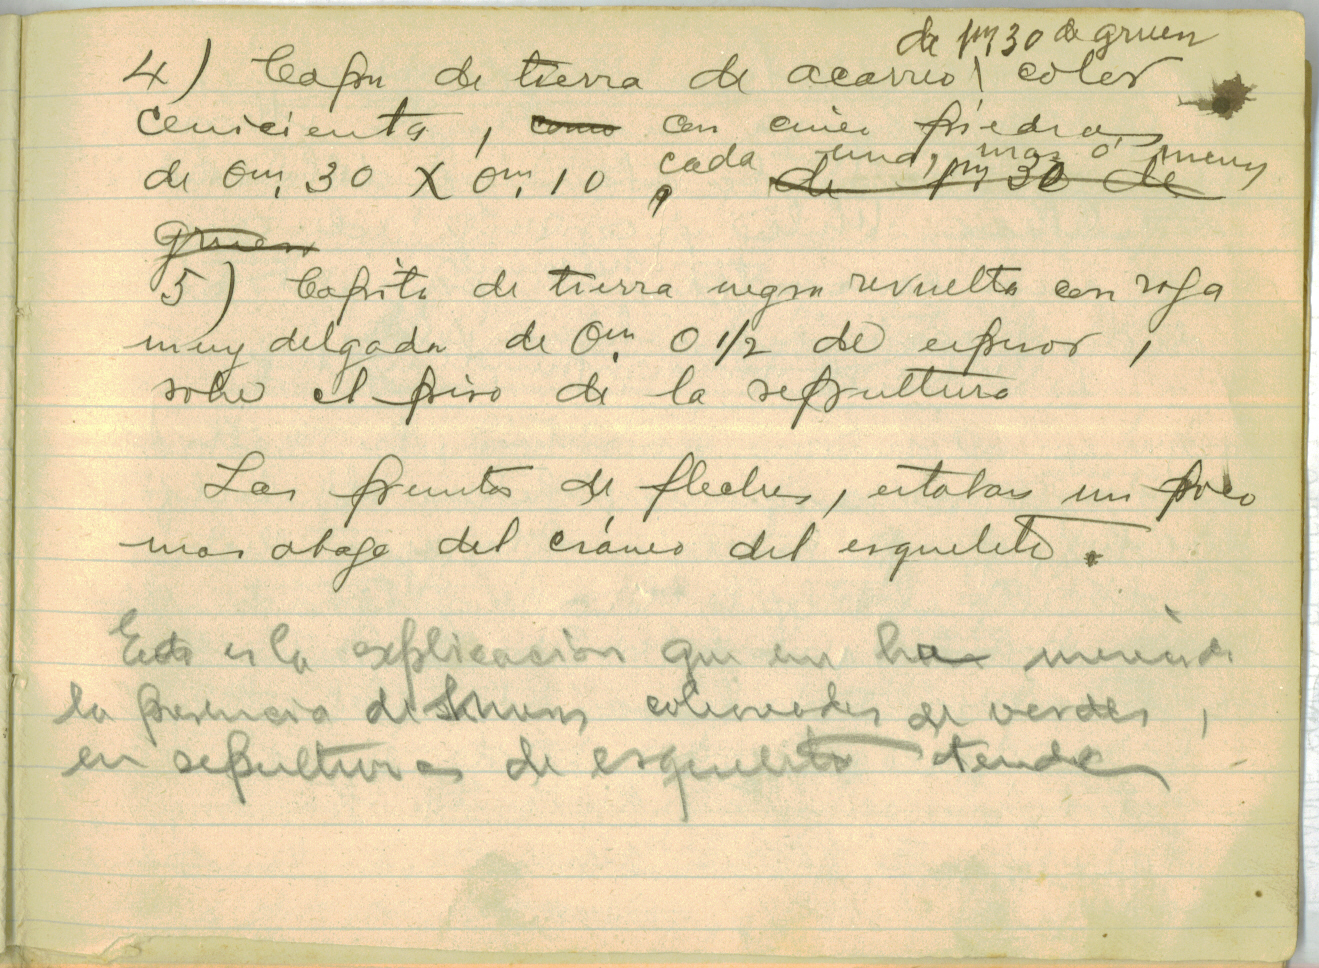 de 1m 30 de grueso
4) Capa de tierra de acarreo color
cenicienta, como con cinco piedras
cada una, mas ó menos
de 0m. 30 X 0m. 10, de 1m 30 de
grueso
5) Capita de tierra negra revuelta con roja
muy delgada de 0m. 0 1/2 de espesor,
sobre el piso de la sepultura
Las puntas de flechas, estaban un poco
mas abajo del cráneo del esqueleto.
Esta es la explicación que
la presencia de coloreados de verdes,
en sepulturas de esqueleto